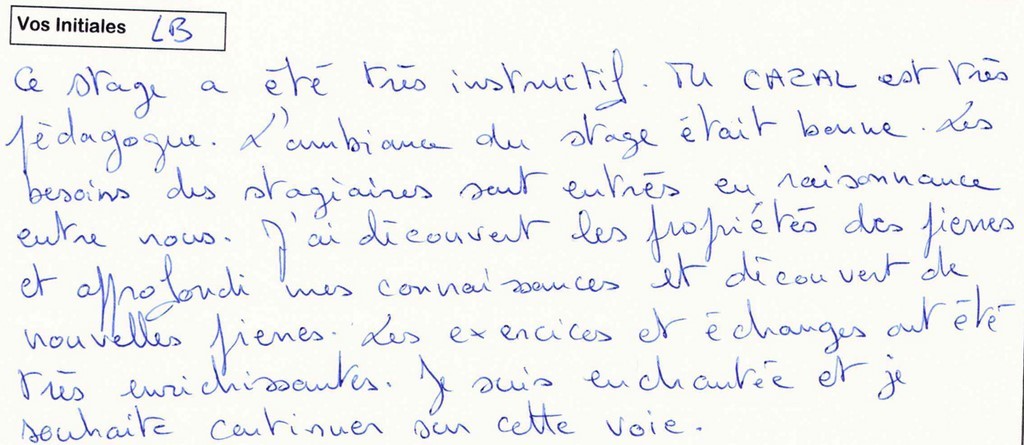 Vos Initiales LB
Ce stage a été très instructif. Mr CAZAL est très
pédagogue. L'ambiance du stage était bonne. Les
besoins des stagiaires sont entrés en raisonnance
entre nous. J'ai découvert les propriétés des pierres
et approfondi mes connaissances et découvert de
nouvelles pierres. Les exercices et échanges ont été
très enrichissantes. Je suis enchantée et je
souhaite continuer sur cette voie.